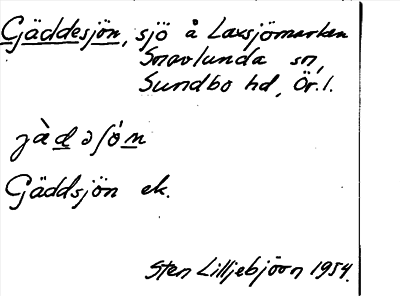 Gäddesjön, sjö å Laxsjömarken
Snavlunda sn,
Sundbo hd, Ör. l.
jàdəʃón
Gäddsjön ek.
Sten Lilljebjörn 1954.